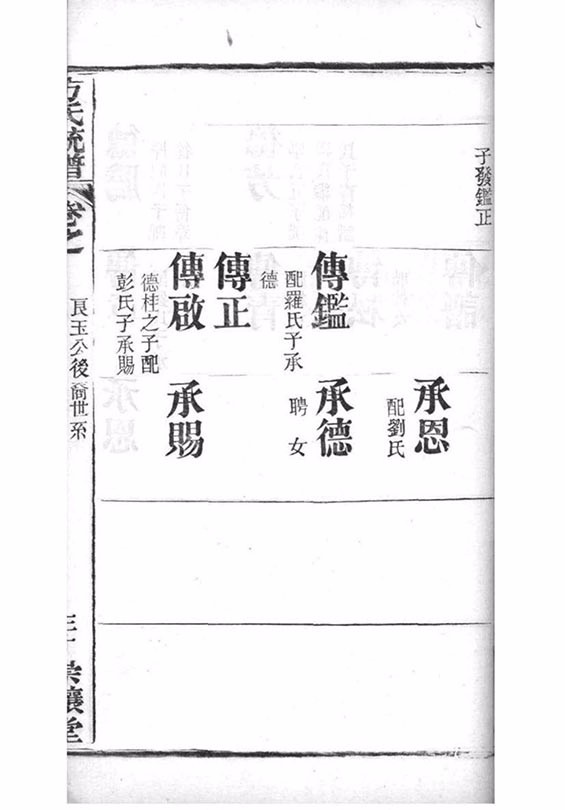 子發鑑正
傳鑑
配羅氏子承
德
傳正
傳啟
德桂之子配
彭氏子承賜
承恩
配劉氏
承德
聘女
承賜
方氏統譜
卷之
良玉公後裔世系
堂